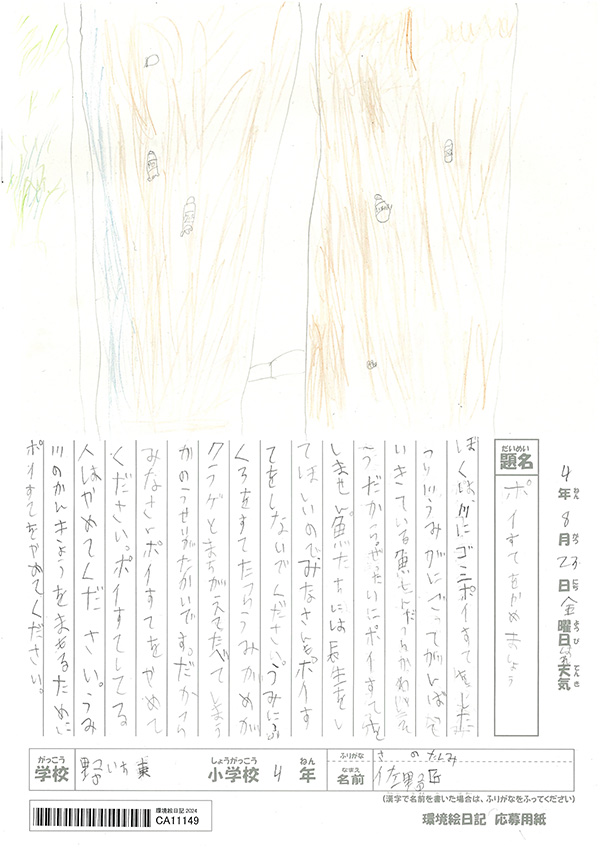 4年8月23日金曜日 天気
ねん がつ にち ようび てんき
だいめい
題名
ポイすてをやめましょう
ぼくは川にゴミポイすてをした
つり川うみがにごってがいばで
いきている魚
だからぜったいにポイすてを
しません魚たちには長生をし
てほしいのでみなさんもポイす
てをしないでください。うみにふ
くろをすてたらうみがめが
クラゲとまちがえてたべてしまう
かのうせいがたかいです。だから
みなさんポイすてをやめて
ください。ポイすてしてる
人はやめてください。うみ
川のかんきょうをまもるために
ポイすてをやめてください。
がっこう
学校
東
しょうがっこう
小学校
4
ねん
年
ふりがな
さの たくみ
なまえ
名前
佐野匠
(漢字で名前を書いた場合は、ふりがなをふってください)
環境絵日記2024
CA11149
環境絵日記 応募用紙